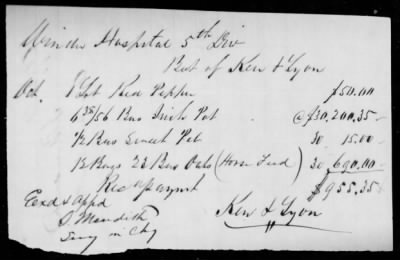 Winder Hospital 5th Div
Bot of Ken & Lyon
Oct. 1 Lot Red Pepper $50.00
6 38/56 Bus Irish Pot @ $30, 200.35
1/2 Bus Sweet Pot 30 15.00
12 Bags 23 Bus Oats (Horse Feed) 30 690.00
Rec payment $955.35
Exd & appd Ken & Lyon
Surg in Chg